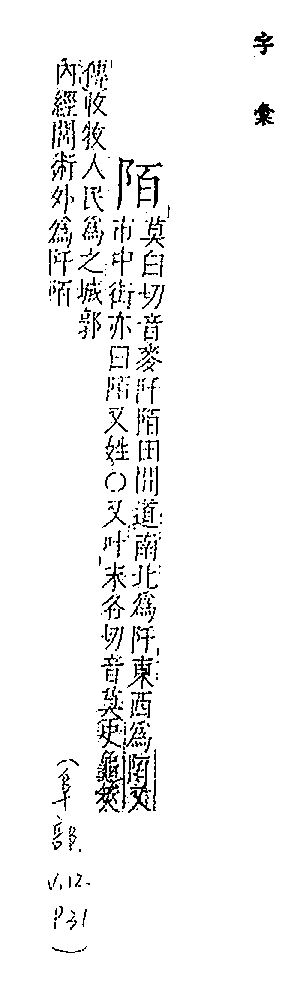 字彙
陌
莫白切音麥阡陌田間道南北爲阡東西爲陌又
市中街亦曰陌又姓○又叶末各切音莫史龜筴
傳收牧人民爲之城郭
內經閭術外爲阡陌
(阜部.
V.12.
P31)